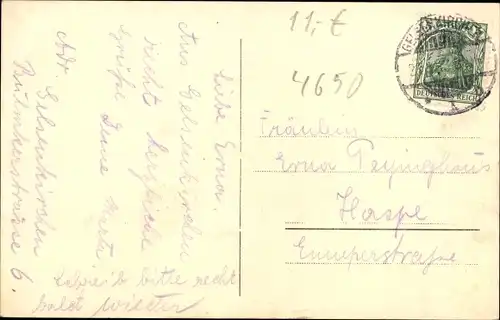 11,-€
4650
GELSENKIRCHEN
DEUTSCHES REICH
Liebe Erna.
Aus Gelsenkirchen
recht herzliche
Grüße Deine
Adr. Gelsenkirchen
6.
Schreib bitte recht
bald wieder
Fräulein
Erna
Haspe
Enneperstraße